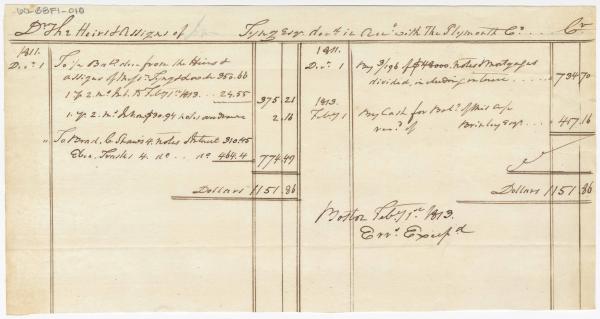 60-BBF1-010
Dr The Heirs & Assigns of Tyng Esqr. decd. in Acct. with The Plymouth Co. Cr
1811.
Decr. 1 To ye Bale. due from the Heirs &
assigns of 350.66
1 yr 2 ms Int. to Feby 1st 1813 24.55 375.21
1 yr 2 ms Int. on $30.94 notes 2.16
" To Brad. C. Shaws 4 notes & Interest 310.45
Eben. Trasks 4 do do 464.4 774.49
Dollars 1151.86
1811.
Decr. 1 By 3/196 of $48000. notes & Mortgages
divided, including 734.70
1813.
Feby 1 By Cash for Bale. of this
recd. of Brinley Esqr. 417.16
Dollars 1151.86
Boston Feby 1st 1813.
Errs. Excepd